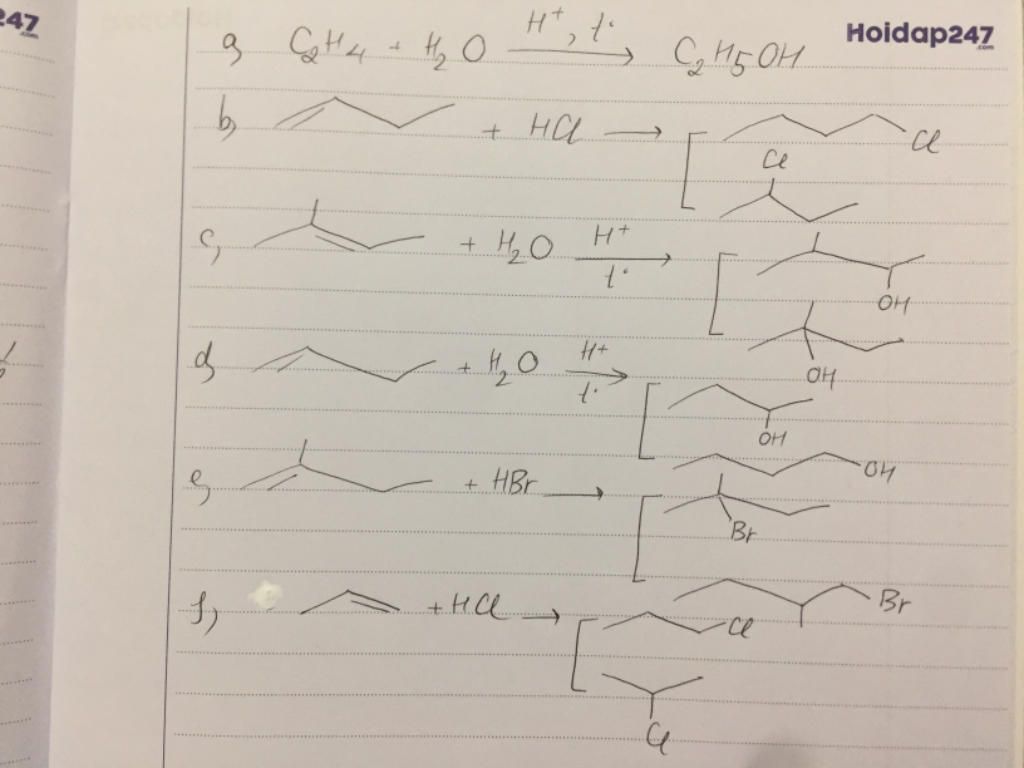 247
.com
Hoidap247
.com
a, C₂H₄ + H₂O H⁺, t° → C₂H₅OH
b, + HCl → Cl
Cl
c, + H₂O H⁺ t° → OH
OH
d, + H₂O H⁺ t° → OH
OH
e, + HBr → Br
Br
f, + HCl → Cl
Cl